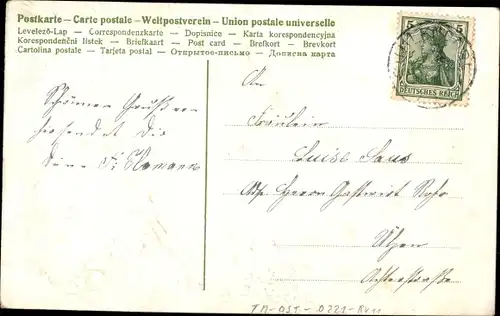 Postkarte – Carte postale – Weltpostverein – Union postale universelle
Levelező-Lap — Correspondenzkarte — Dopisnice — Karta korespondencyjna
Korespondenční lístek — Briefkaart — Post card — Brefkort — Brevkort
Cartolina postale — Tarjeta postal — Открытое-письмо — Дописна карта
5 5
DEUTSCHES REICH
An
Fräulein
Luise
Adr. Herrn Gastwirt
Schönen Gruß
sendet Dir
Deine
Achterstraße
TM-OST-0221-R411